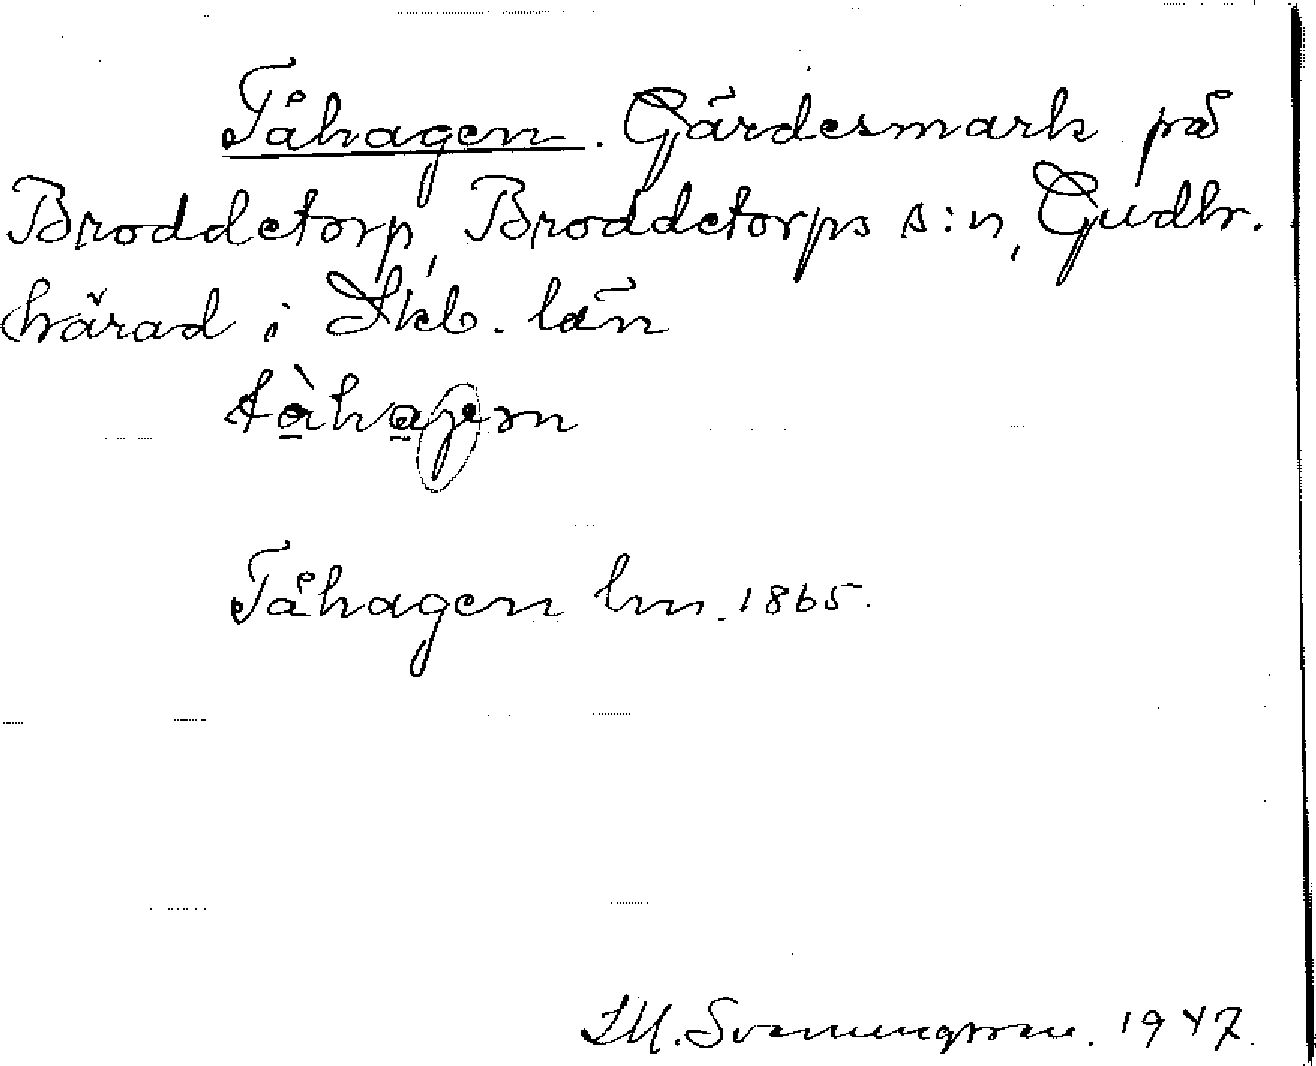 Tåhagen. Gärdesmark på
Broddetorp, Broddetorps s:n, Gudh.
härad i Skb. län
tàhagen
Tåhagen lm. 1865.
Svenningsson. 1947.